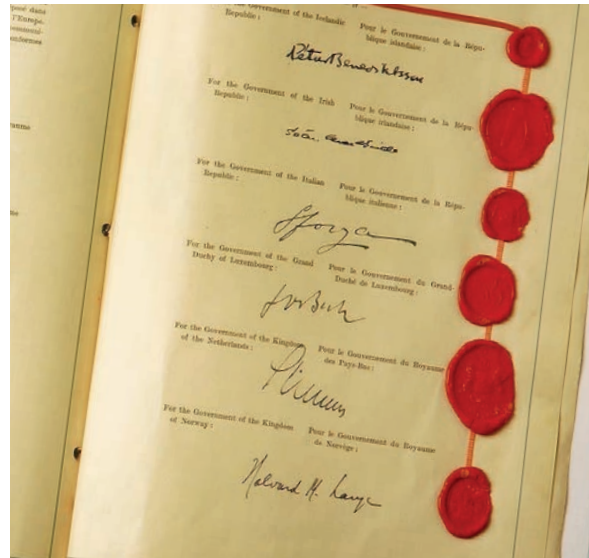 posé dans
l'Europe.
ommuni-
onformes
aume
ne
For the Government of the Icelandic
Republic :
Pour le Gouvernement de la Répu-
blique islandaise :
Pétur Benediktsson
For the Government of the Irish
Republic :
Pour le Gouvernement de la Répu-
blique irlandaise :
Seán MacBride
For the Government of the Italian
Republic :
Pour le Gouvernement de la Répu-
blique italienne :
Sforza
For the Government of the Grand
Duchy of Luxembourg :
Pour le Gouvernement du Grand-
Duché de Luxembourg :
Jos Bech
For the Government of the Kingdom
of the Netherlands :
Pour le Gouvernement du Royaume
des Pays-Bas :
For the Government of the Kingdom
of Norway :
Pour le Gouvernement du Royaume
de Norvège :
Halvard M. Lange